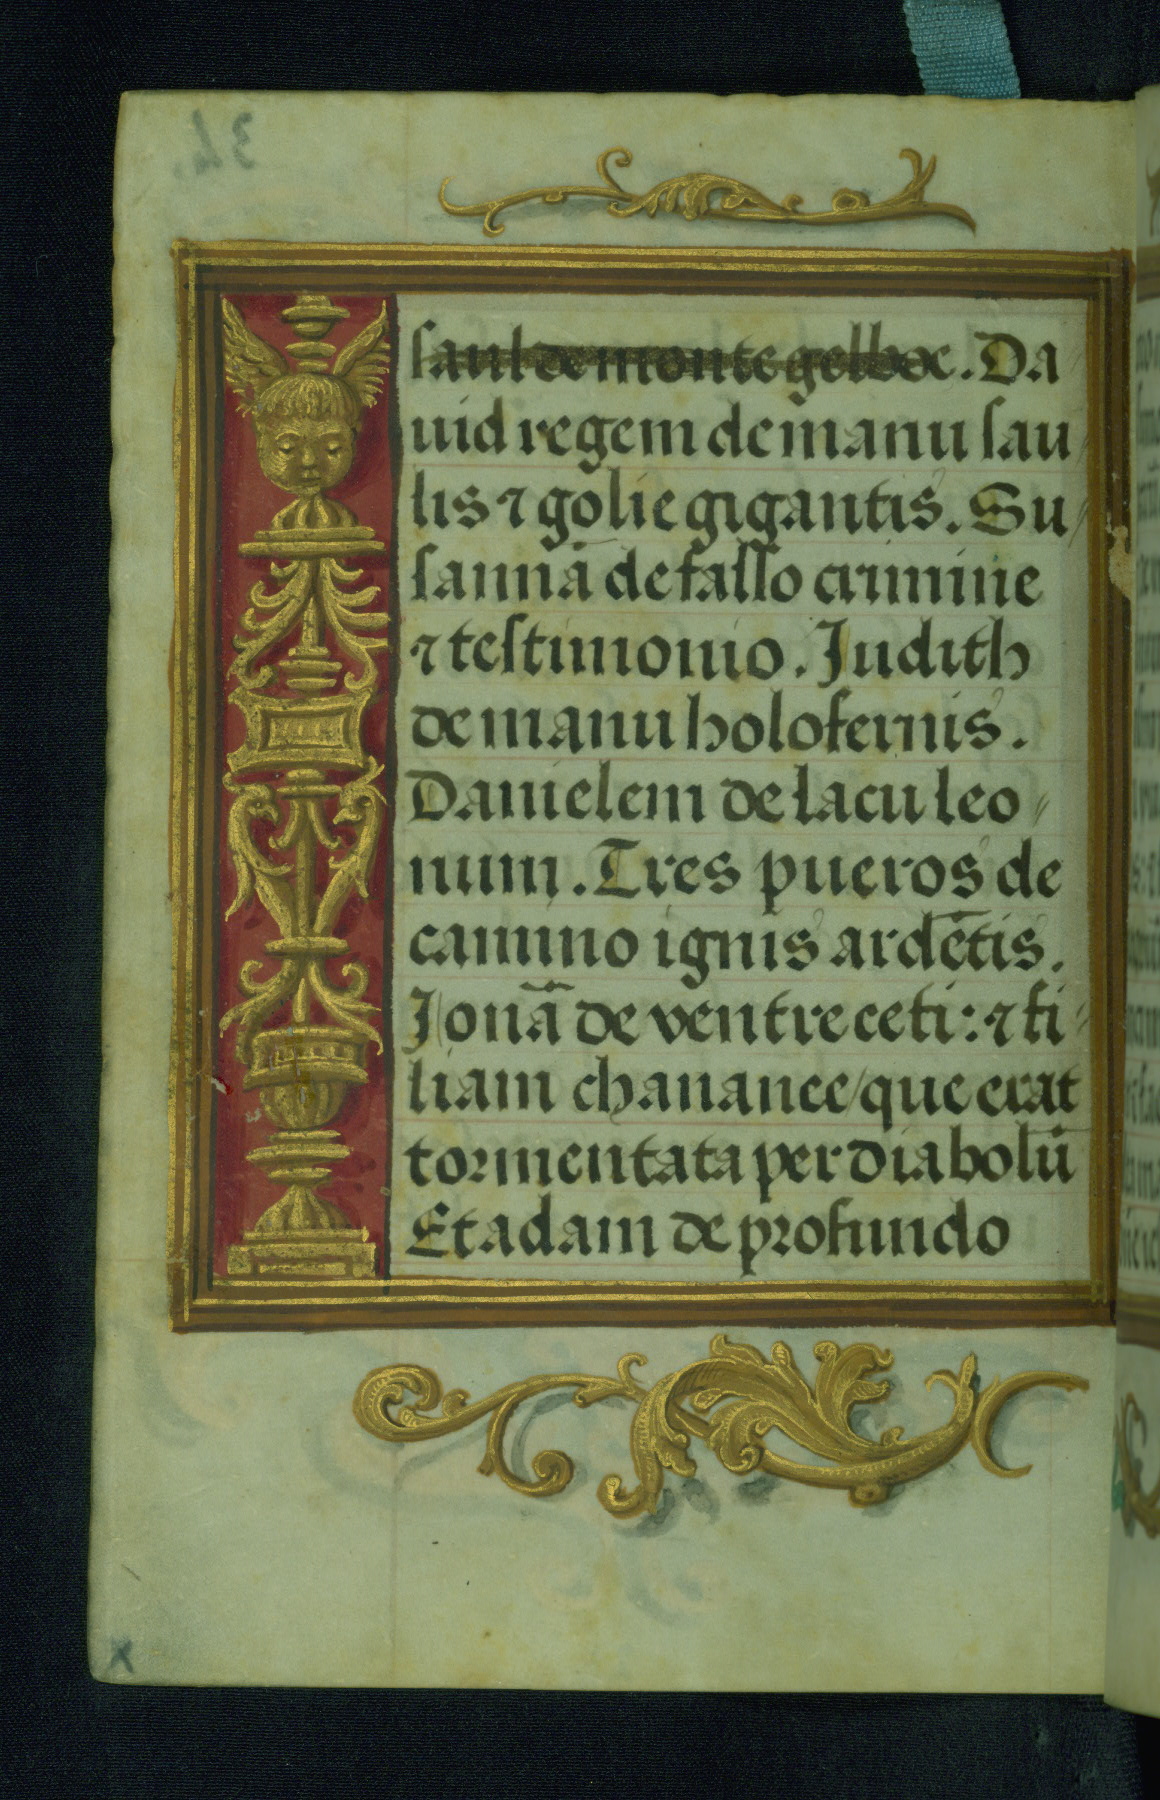 saul de monte gelboe. Da
uid regem de manu sau
lis ⁊ golie gigantis. Su
sannā de falso crimine
⁊ testimonio. Judith
de manu holofernis.
Danielem de lacu leo
num. Tres pueros de
camino ignis ardētis.
Jonā de ventre ceti: ⁊ fi
liam chananee/que erat
tormentata per diabolū
Et adam de profundo